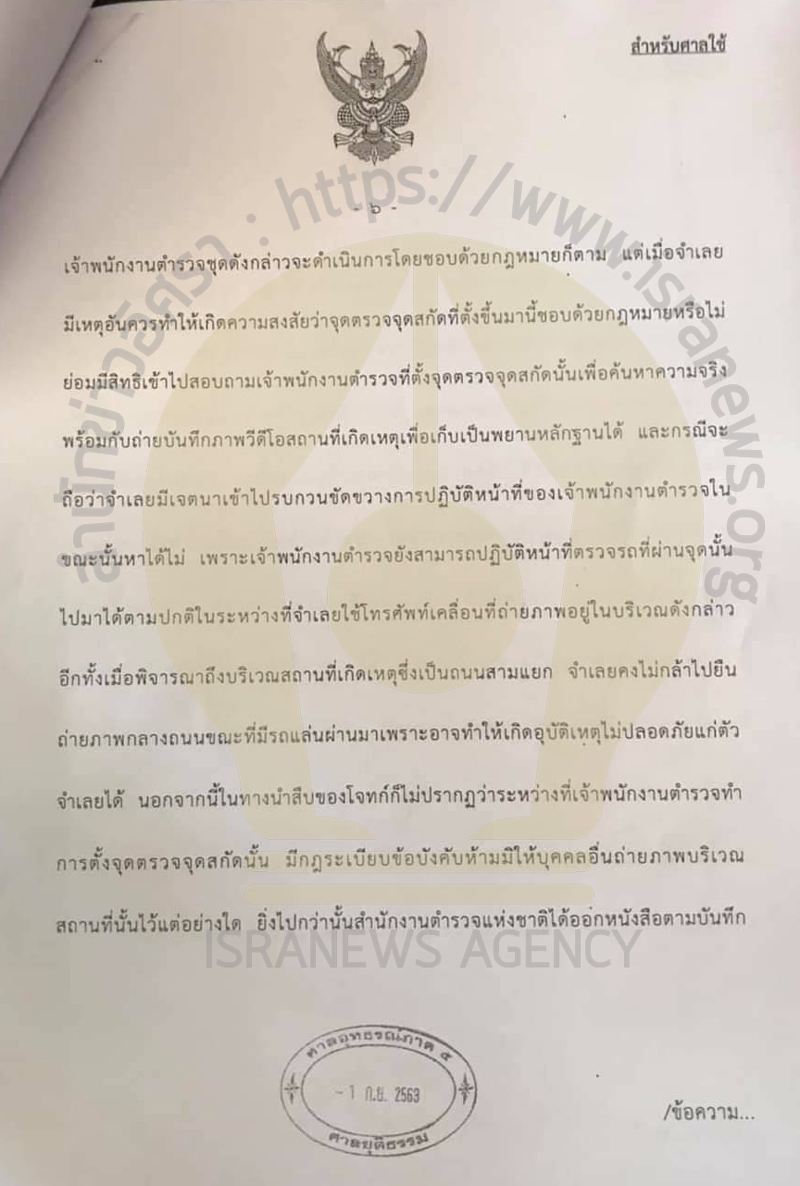 สำหรับศาลใช้
- ๖ -
เจ้าพนักงานตำรวจชุดดังกล่าวจะดำเนินการโดยชอบด้วยกฎหมายก็ตาม แต่เมื่อจำเลย
มีเหตุอันควรทำให้เกิดความสงสัยว่าจุดตรวจจุดสกัดที่ตั้งขึ้นมานี้ชอบด้วยกฎหมายหรือไม่
ย่อมมีสิทธิเข้าไปสอบถามเจ้าพนักงานตำรวจที่ตั้งจุดตรวจจุดสกัดนั้นเพื่อค้นหาความจริง
พร้อมกับถ่ายบันทึกภาพวีดีโอสถานที่เกิดเหตุเพื่อเก็บเป็นพยานหลักฐานได้ และกรณีจะ
ถือว่าจำเลยมีเจตนาเข้าไปรบกวนขัดขวางการปฏิบัติหน้าที่ของเจ้าพนักงานตำรวจใน
ขณะนั้นหาได้ไม่ เพราะเจ้าพนักงานตำรวจยังสามารถปฏิบัติหน้าที่ตรวจรถที่ผ่านจุดนั้น
ไปมาได้ตามปกติในระหว่างที่จำเลยใช้โทรศัพท์เคลื่อนที่ถ่ายภาพอยู่ในบริเวณดังกล่าว
อีกทั้งเมื่อพิจารณาถึงบริเวณสถานที่เกิดเหตุซึ่งเป็นถนนสามแยก จำเลยคงไม่กล้าไปยืน
ถ่ายภาพกลางถนนขณะที่มีรถแล่นผ่านมาเพราะอาจทำให้เกิดอุบัติเหตุไม่ปลอดภัยแก่ตัว
จำเลยได้ นอกจากนี้ในทางนำสืบของโจทก์ก็ไม่ปรากฏว่าระหว่างที่เจ้าพนักงานตำรวจทำ
การตั้งจุดตรวจจุดสกัดนั้น มีกฎระเบียบข้อบังคับห้ามมิให้บุคคลอื่นถ่ายภาพบริเวณ
สถานที่นั้นไว้แต่อย่างใด ยิ่งไปกว่านั้นสำนักงานตำรวจแห่งชาติได้ออกหนังสือตามบันทึก
/ข้อความ...
ศาลอุทธรณ์ภาค ๕
- 1 ก.ย. 2563
ศาลยุติธรรม
สำนักข่าวอิศรา : https://www.isranews.org
ISRANEWS AGENCY